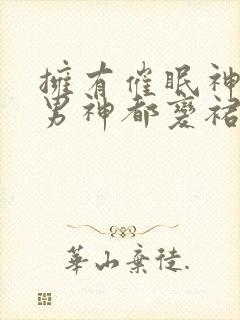 擁有催眠神
男神都變裙
華山棄徒.